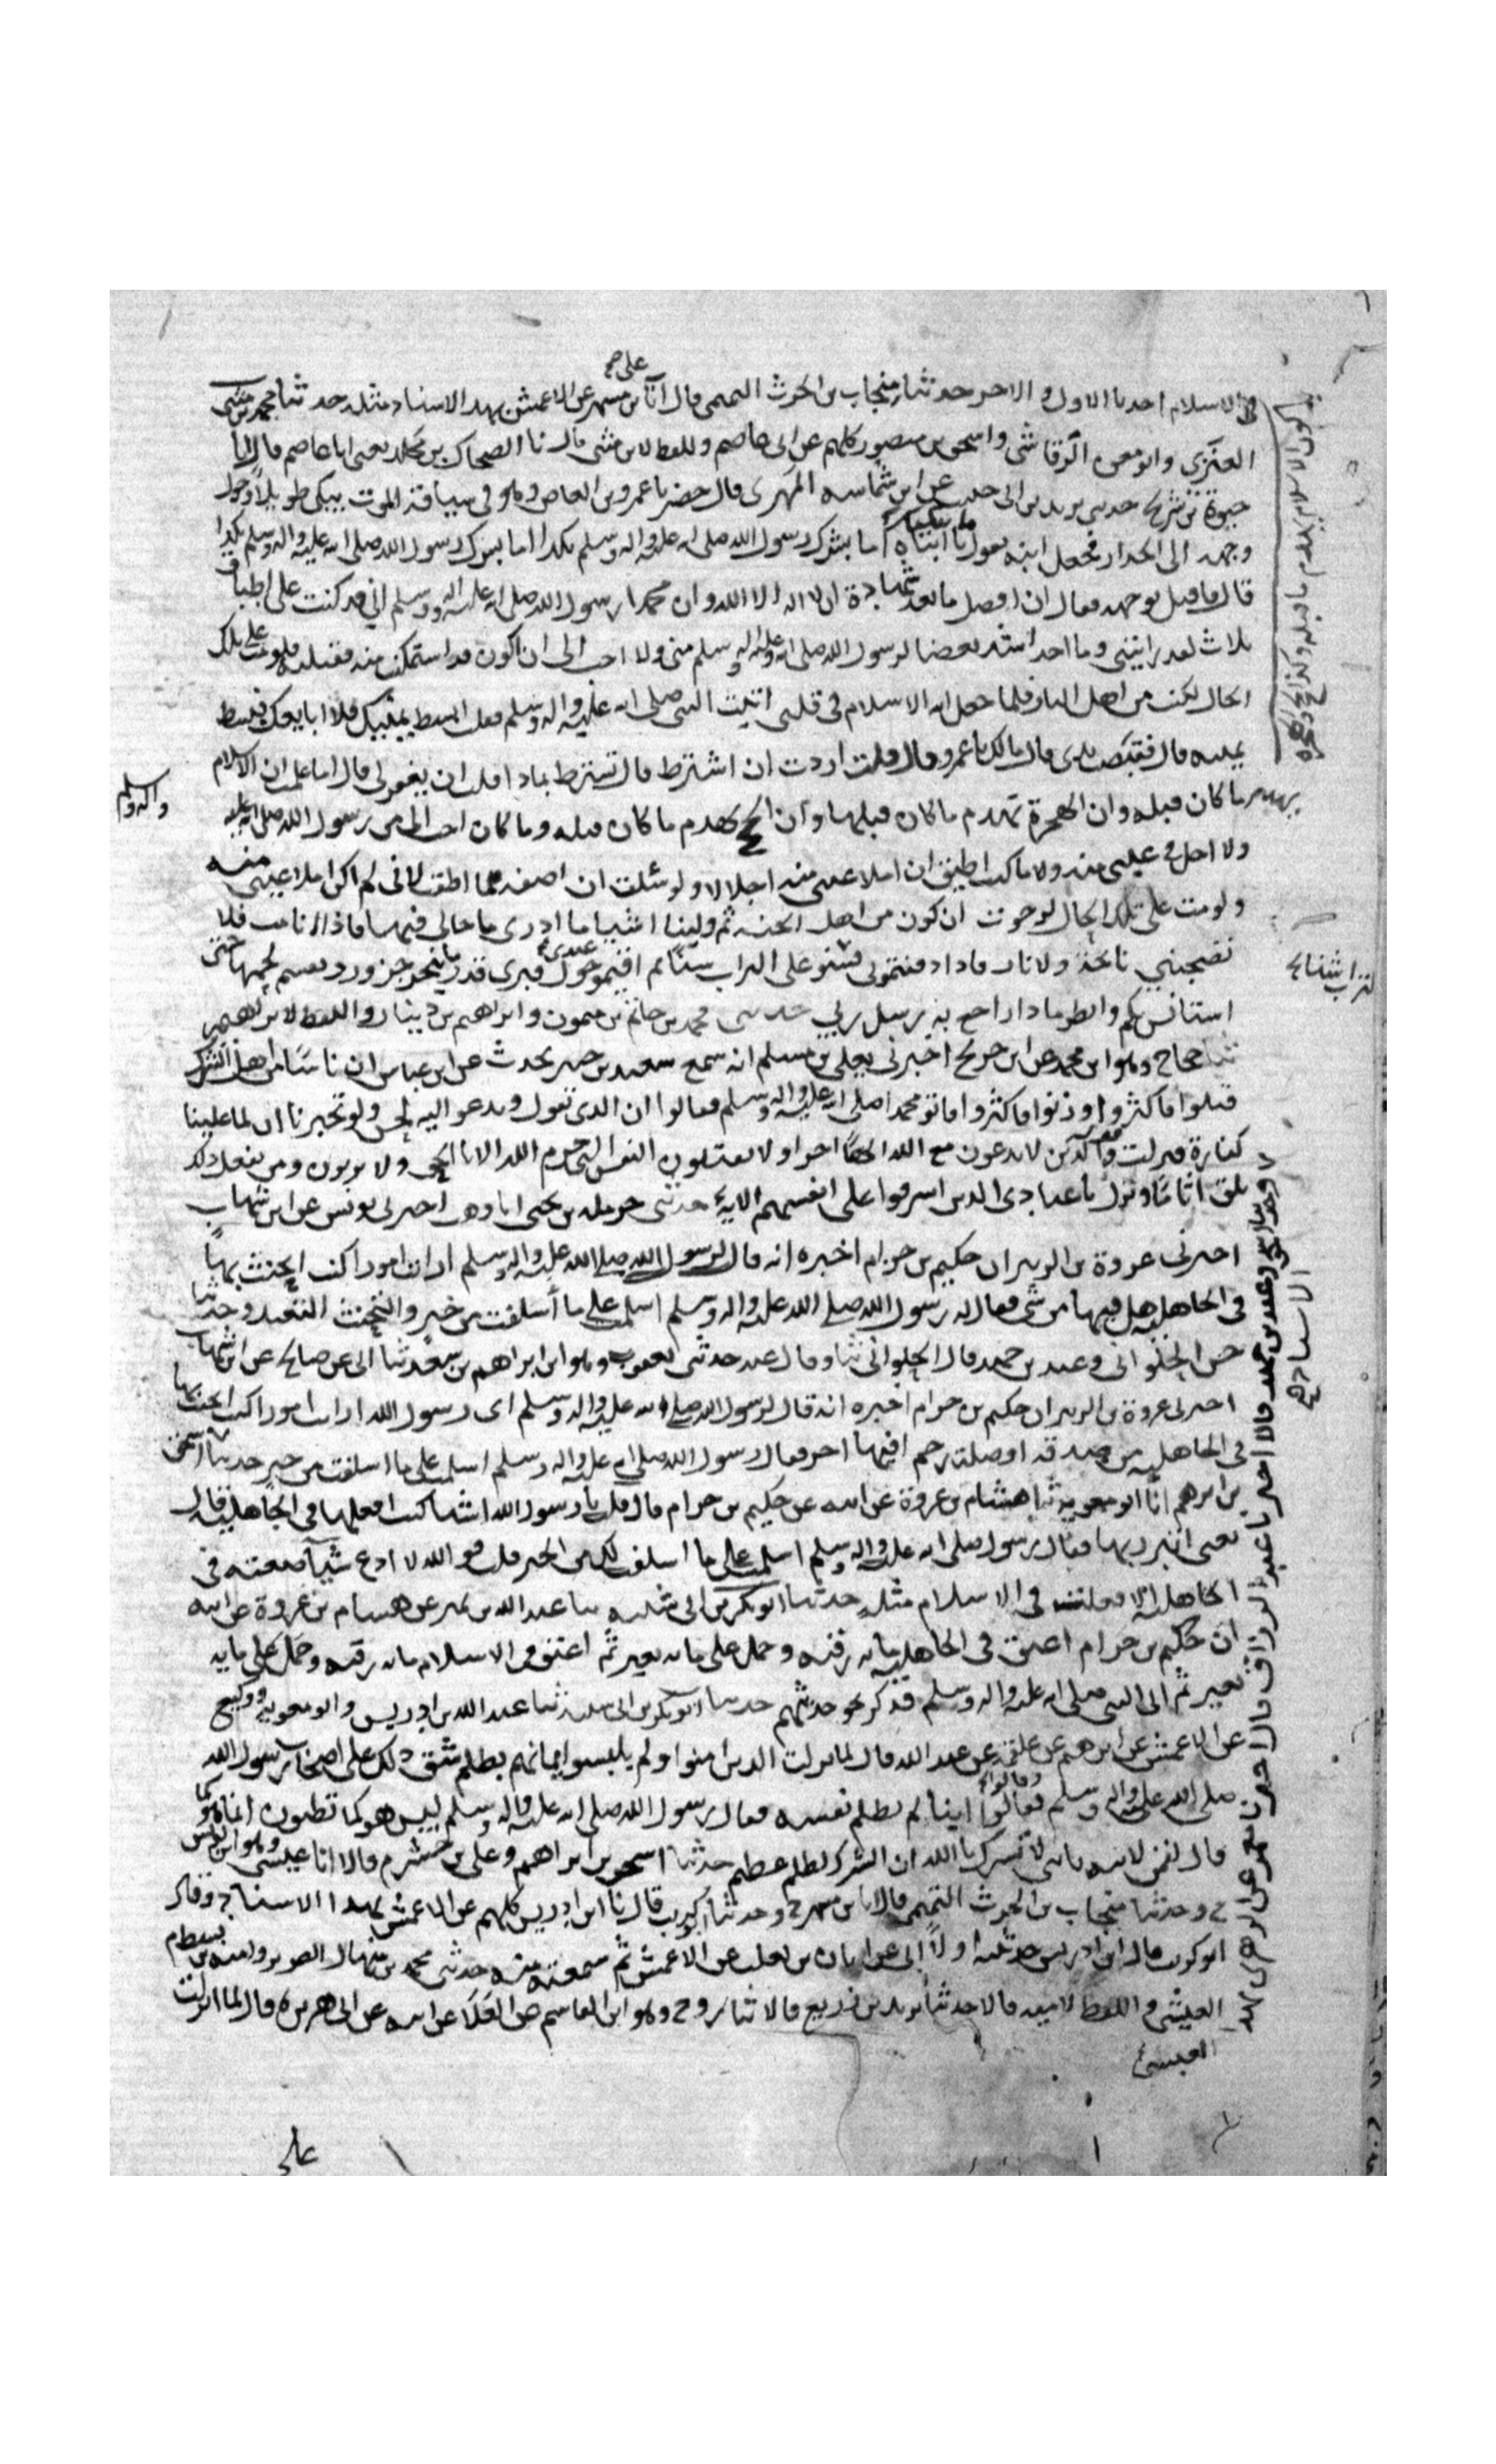 في الاسلام اخذ بالاول والاخر حدثنا منجاب بن الحرث التميمي قال انا بن مسهر عن الاعمش بهذا الاسناد مثله حدثنا محمد بن مثنى
العنزي وابو معن الرقاشي واسحق بن منصور كلهم عن ابي عاصم واللفظ لابن مثنى قال نا الضحاك بن مخلد يعنى ابا عاصم قال انا
حيوة بن شريح حدثني يزيد بن ابي حبيب عن ابن شماسه المهرى قال حضرنا عمرو بن العاص وهو في سياقة الموت يبكى طويلا وحول
وجهه الى الجدار فجعل ابنه يقول ما يبكيك يا ابتاه اما بشرك رسول الله صلى الله عليه واله وسلم بكذا اما بشرك رسول الله صلى الله عليه واله وسلم بكذا
قال فاقبل بوجهه فقال ان افضل ما نعد شهادة ان لا اله الا الله وان محمدا رسول الله صلى الله عليه واله وسلم اني قد كنت على اطباق
ثلاث لقد رايتني وما احد اشد بغضا لرسول الله صلى الله عليه واله وسلم منى ولا احب الى ان اكون قد استمكنت منه فقتلته فلو مت على تلك
الحال لكنت من اهل النار فلما جعل الله الاسلام في قلبى اتيت النبي صلى الله عليه واله وسلم فقلت ابسط يمينك فلاابايعك فبسط
يمينه قال فقبضت يدى قال مالك يا عمرو قال قلت اردت ان اشترط قال تشترط بماذا قلت ان يغفر لى قال اما علمت ان الاسلام
يهدم ما كان قبله وان الهجرة تهدم ما كان قبلها وان الحج يهدم ما كان قبله وما كان احد احب الى من رسول الله صلى الله عليه
واله وسلم
ولا اجل في عينى منه ولا ما كنت اطيق ان املا عينى منه اجلالا ولو سئلت ان اصفه ما اطقت لانى لم اكن املا عينى منه
ولو مت على تلك الحال لرجوت ان اكون من اهل الجنه ثم ولينا اشيا ما ادرى ما حالى فيها فاذا انا مت فلا
تصحبني نائحة ولا نار فاذا دفنتمونى فسنو على التراب سنا ثم اقيمو حول قبرى قدر ما ينحر جزور ويقسم لحمها حتى
استانس بكم وانظر ماذا اراجع به رسل ربي حدثنى محمد بن حاتم بن ميمون وابراهيم بن دينار واللفظ لابراهيم
ثنا حجاج وهو ابن محمد عن ابن جريج اخبرني يعلى بن مسلم انه سمع سعيد بن جبير يحدث عن ابن عباس ان ناسا من اهل الشرك
قتلوا فاكثروا وزنوا فاكثروا فاتو محمدا صلى الله عليه واله وسلم فقالوا ان الذى تقول وتدعو اليه لحسن ولو تخبرنا ان لما علمنا
كفارة فنزلت والذين لا يدعون مع الله الها اخر ولا يقتلون النفس التي حرم الله الا بالحق ولا يزنون ومن يفعل ذلك
يلق اثاما ونزل يا عبادي الذين اسرفوا على انفسهم الاية حدثنى حرمله بن يحيى انا بن وهب اخبرنى يونس عن ابن شهاب
اخبرنى عروة بن الزبير ان حكيم بن حزام اخبره انه قال لرسول الله صلى الله عليه واله وسلم ارايت امورا كنت اتحنث بها
في الجاهليه هل لي فيها من شي فقال له رسول الله صلى الله عليه واله وسلم اسلمت على ما اسلفت من خير والتحنث التعبد وحدثنا
حسن الحلواني وعبد بن حميد قال الحلوانى ثنا وقال عبد حدثنى يعقوب وهو ابن ابراهيم بن سعد ثنا ابى عن صالح عن ابن شهاب
اخبرنى عروة بن الزبير ان حكيم بن حزام اخبره انه قال لرسول الله صلى الله عليه واله وسلم اى رسول الله ارايت امورا كنت اتحنث بها
في الجاهليه من صدقه او صلة رحم افيها اجر فقال رسول الله صلى الله عليه واله وسلم اسلمت على ما اسلفت من خير حدثنا اسحق
بن ابرهيم انا ابو معويه ثنا هشام بن عروة عن ابيه عن حكيم بن حزام قال قلت يا رسول الله اشيا كنت افعلها في الجاهلية قال
يعنى اتبرر بها فقال رسول صلى الله عليه واله وسلم اسلمت على ما اسلفت لك من الخير قلت فو الله لا ادع شيا صنعته في
الجاهلية الا فعلت في الاسلام مثله حدثنا ابو بكر بن ابى شيبه ثنا عبد الله بن نمير عن هشام بن عروة عن ابيه
ان حكيم بن حزام اعتق في الجاهليه مائه رقبه وحمل على مائه بعير ثم اعتق في الاسلام مائه رقبه وحمل على مايه
بعير ثم اتى النبي صلى الله عليه واله وسلم فذكر نحو حديثهم حدثنا ابو بكر بن ابى شيبه ثنا عبد الله بن ادريس وابو معوية ووكيع
عن الاعمش عن ابرهيم عن علقمة عن عبد الله قال لما نزلت الذين امنوا ولم يلبسوا ايمانهم بظلم شق ذلك على اصحاب رسول الله
صلى الله عليه واله وسلم وقالوا اينا لم يظلم نفسه فقال رسول الله صلى الله عليه واله وسلم ليس هو كما تظنون انما هو كما
قال لقمن لابنه يا بنى لا تشرك بالله ان الشرك لظلم عظيم حدثنا اسحق بن ابراهيم وعلى بن خشرم قالا انا عيسى وهو ابن يونس
ح وحدثنا منجاب بن الحرث التميمي قال انا بن مسهر ح وحدثنا ابو كريب قال نا ابن ادريس كلهم عن الاعمش بهذا الاسناد وقال
ابو كريب قال ابن ادريس حدثنيه اولا ابى عن ابان بن تغلب عن الاعمش ثم سمعته منه حدثنى محمد بن منهال الضرير واميه بن بسطام
العيشى واللفظ لاميه قالا حدثنا يزيد بن زريع قالا ثنا روح وهو ابن القاسم عن العلا عن ابيه عن ابى هريره قال لما انزلت
العيسى
على